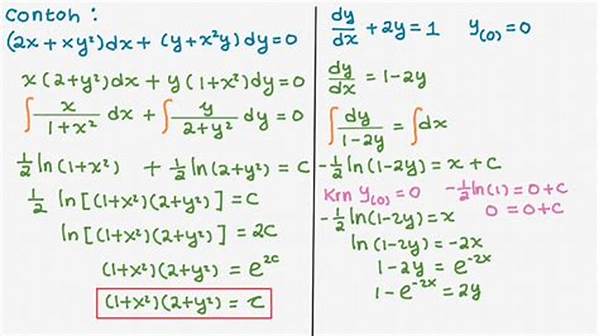 Contoh :
(2x + xy²)dx + (y + x²y)dy = 0
x(2+y²)dx + y(1+x²)dy = 0
∫ x/(1+x²) dx + ∫ y/(2+y²) dy = 0
½ ln(1+x²) + ½ ln(2+y²) = C
½ ln[(1+x²)(2+y²)] = C
ln[(1+x²)(2+y²)] = 2C
(1+x²)(2+y²) = e^(2C)
(1+x²)(2+y²) = C
dy/dx + 2y = 1 y(0) = 0
dy/dx = 1-2y
∫ dy/(1-2y) = ∫ dx
-½ ln(1-2y) = x + C
Krn y(0) = 0 -½ ln(1) = 0 + C
0 = 0 + C
-½ ln(1-2y) = x
ln(1-2y) = -2x
1-2y = e^(-2x)
1-e^(-2x) = 2y